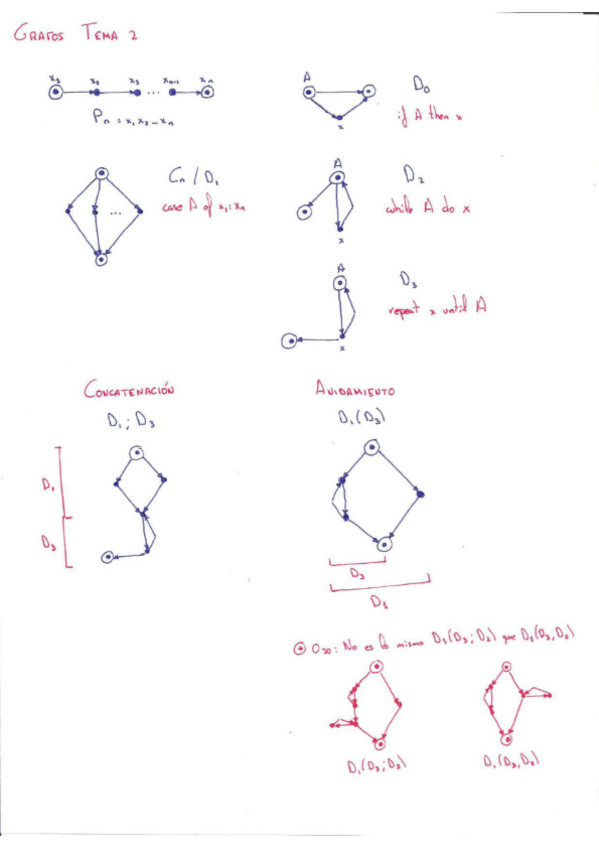 GRAFOS TEMA 2
x₁ x₂ x₃ ... xₙ₋₁ xₙ
Pₙ = x₁ x₂ ... xₙ
A
D₀
if A then x
x
Cₙ / D₁
case A of x₁:xₙ
...
A
D₂
while A do x
x
A
D₃
repeat x until A
x
CONCATENACIÓN
D₁ ; D₃
D₁
D₃
ANIDAMIENTO
D₁(D₃)
D₃
D₁
Ojo: No es lo mismo D₁(D₃;D₂) que D₁(D₃,D₂)
D₁(D₃;D₂)
D₁(D₃,D₂)